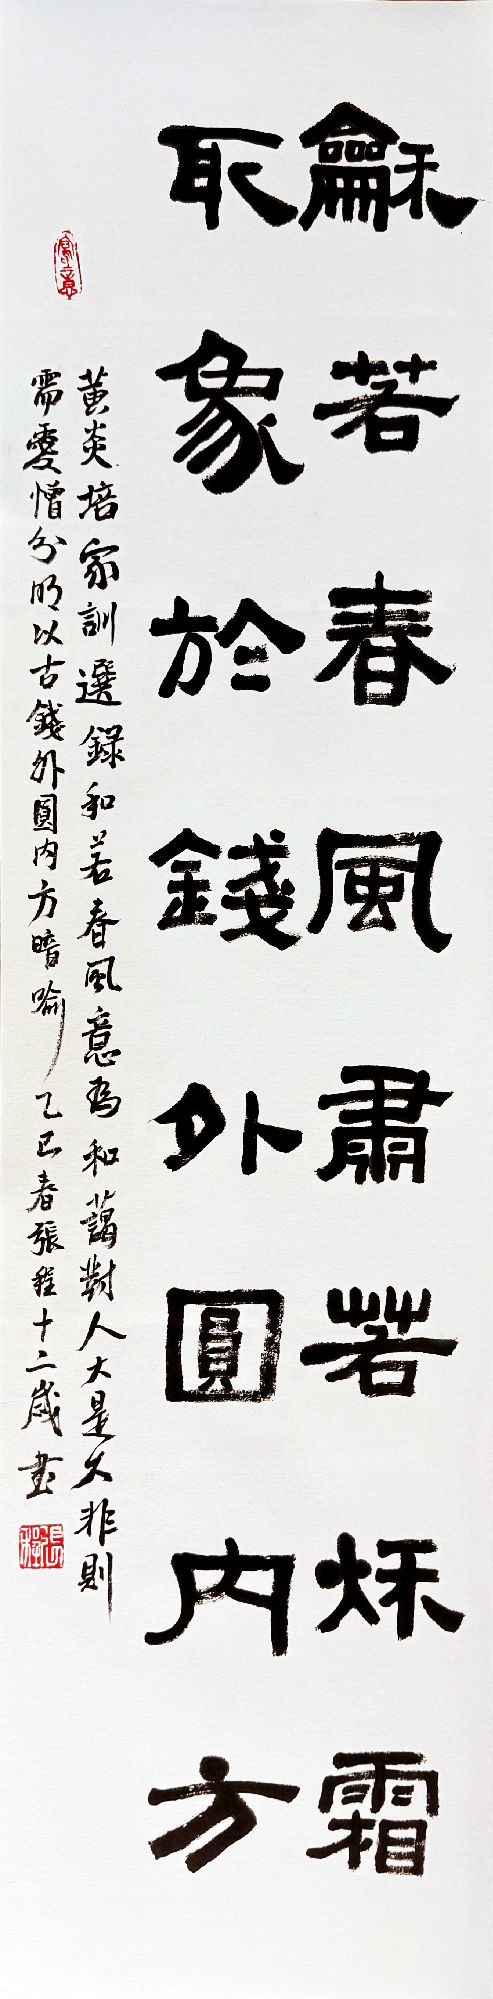 龢若春風肅若秌霜
取象於錢外圓内方
黃炎培家訓選録和若春風意為和藹對人大是大非則
需愛憎分明以古錢外圓内方暗喻乙巳春張程十二歲書
寫意
張程